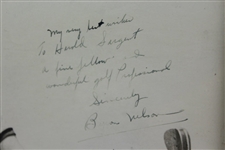 My very best wishes
To Harold Sargent
a fine fellow &
wonderful golf Professional
Sincerely
Byron Nelson